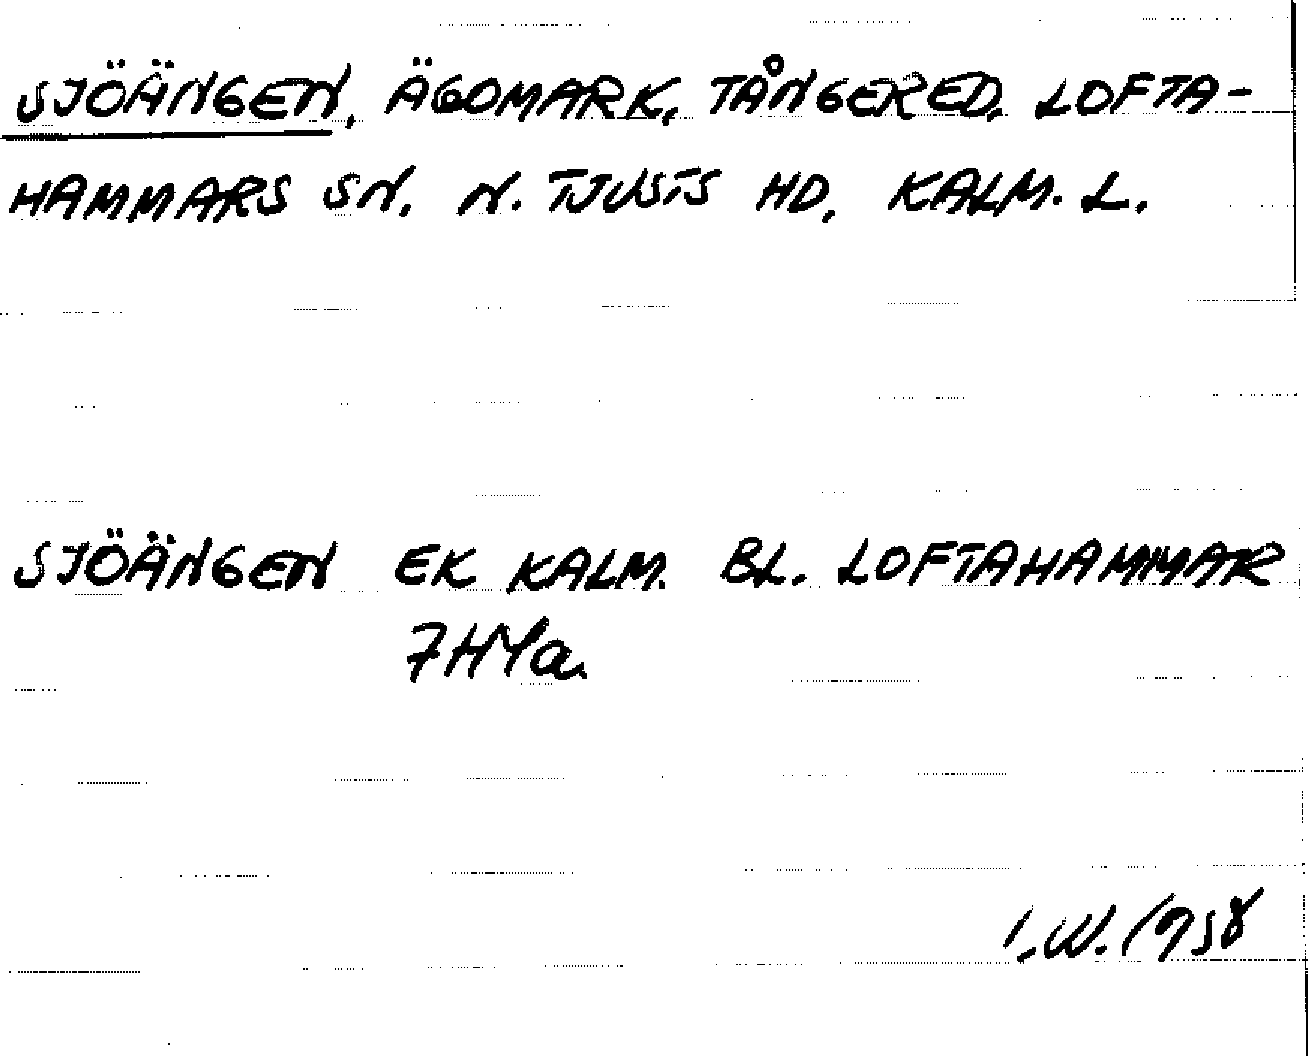 SJÖÄNGEN, ÄGOMARK, TÅNGERED, LOFTA-
HAMMARS SN. N. TJUSTS HD, KALM. L.
SJÖÄNGEN EK KALM. BL. LOFTAHAMMAR
7H4a.
I.W. 1958